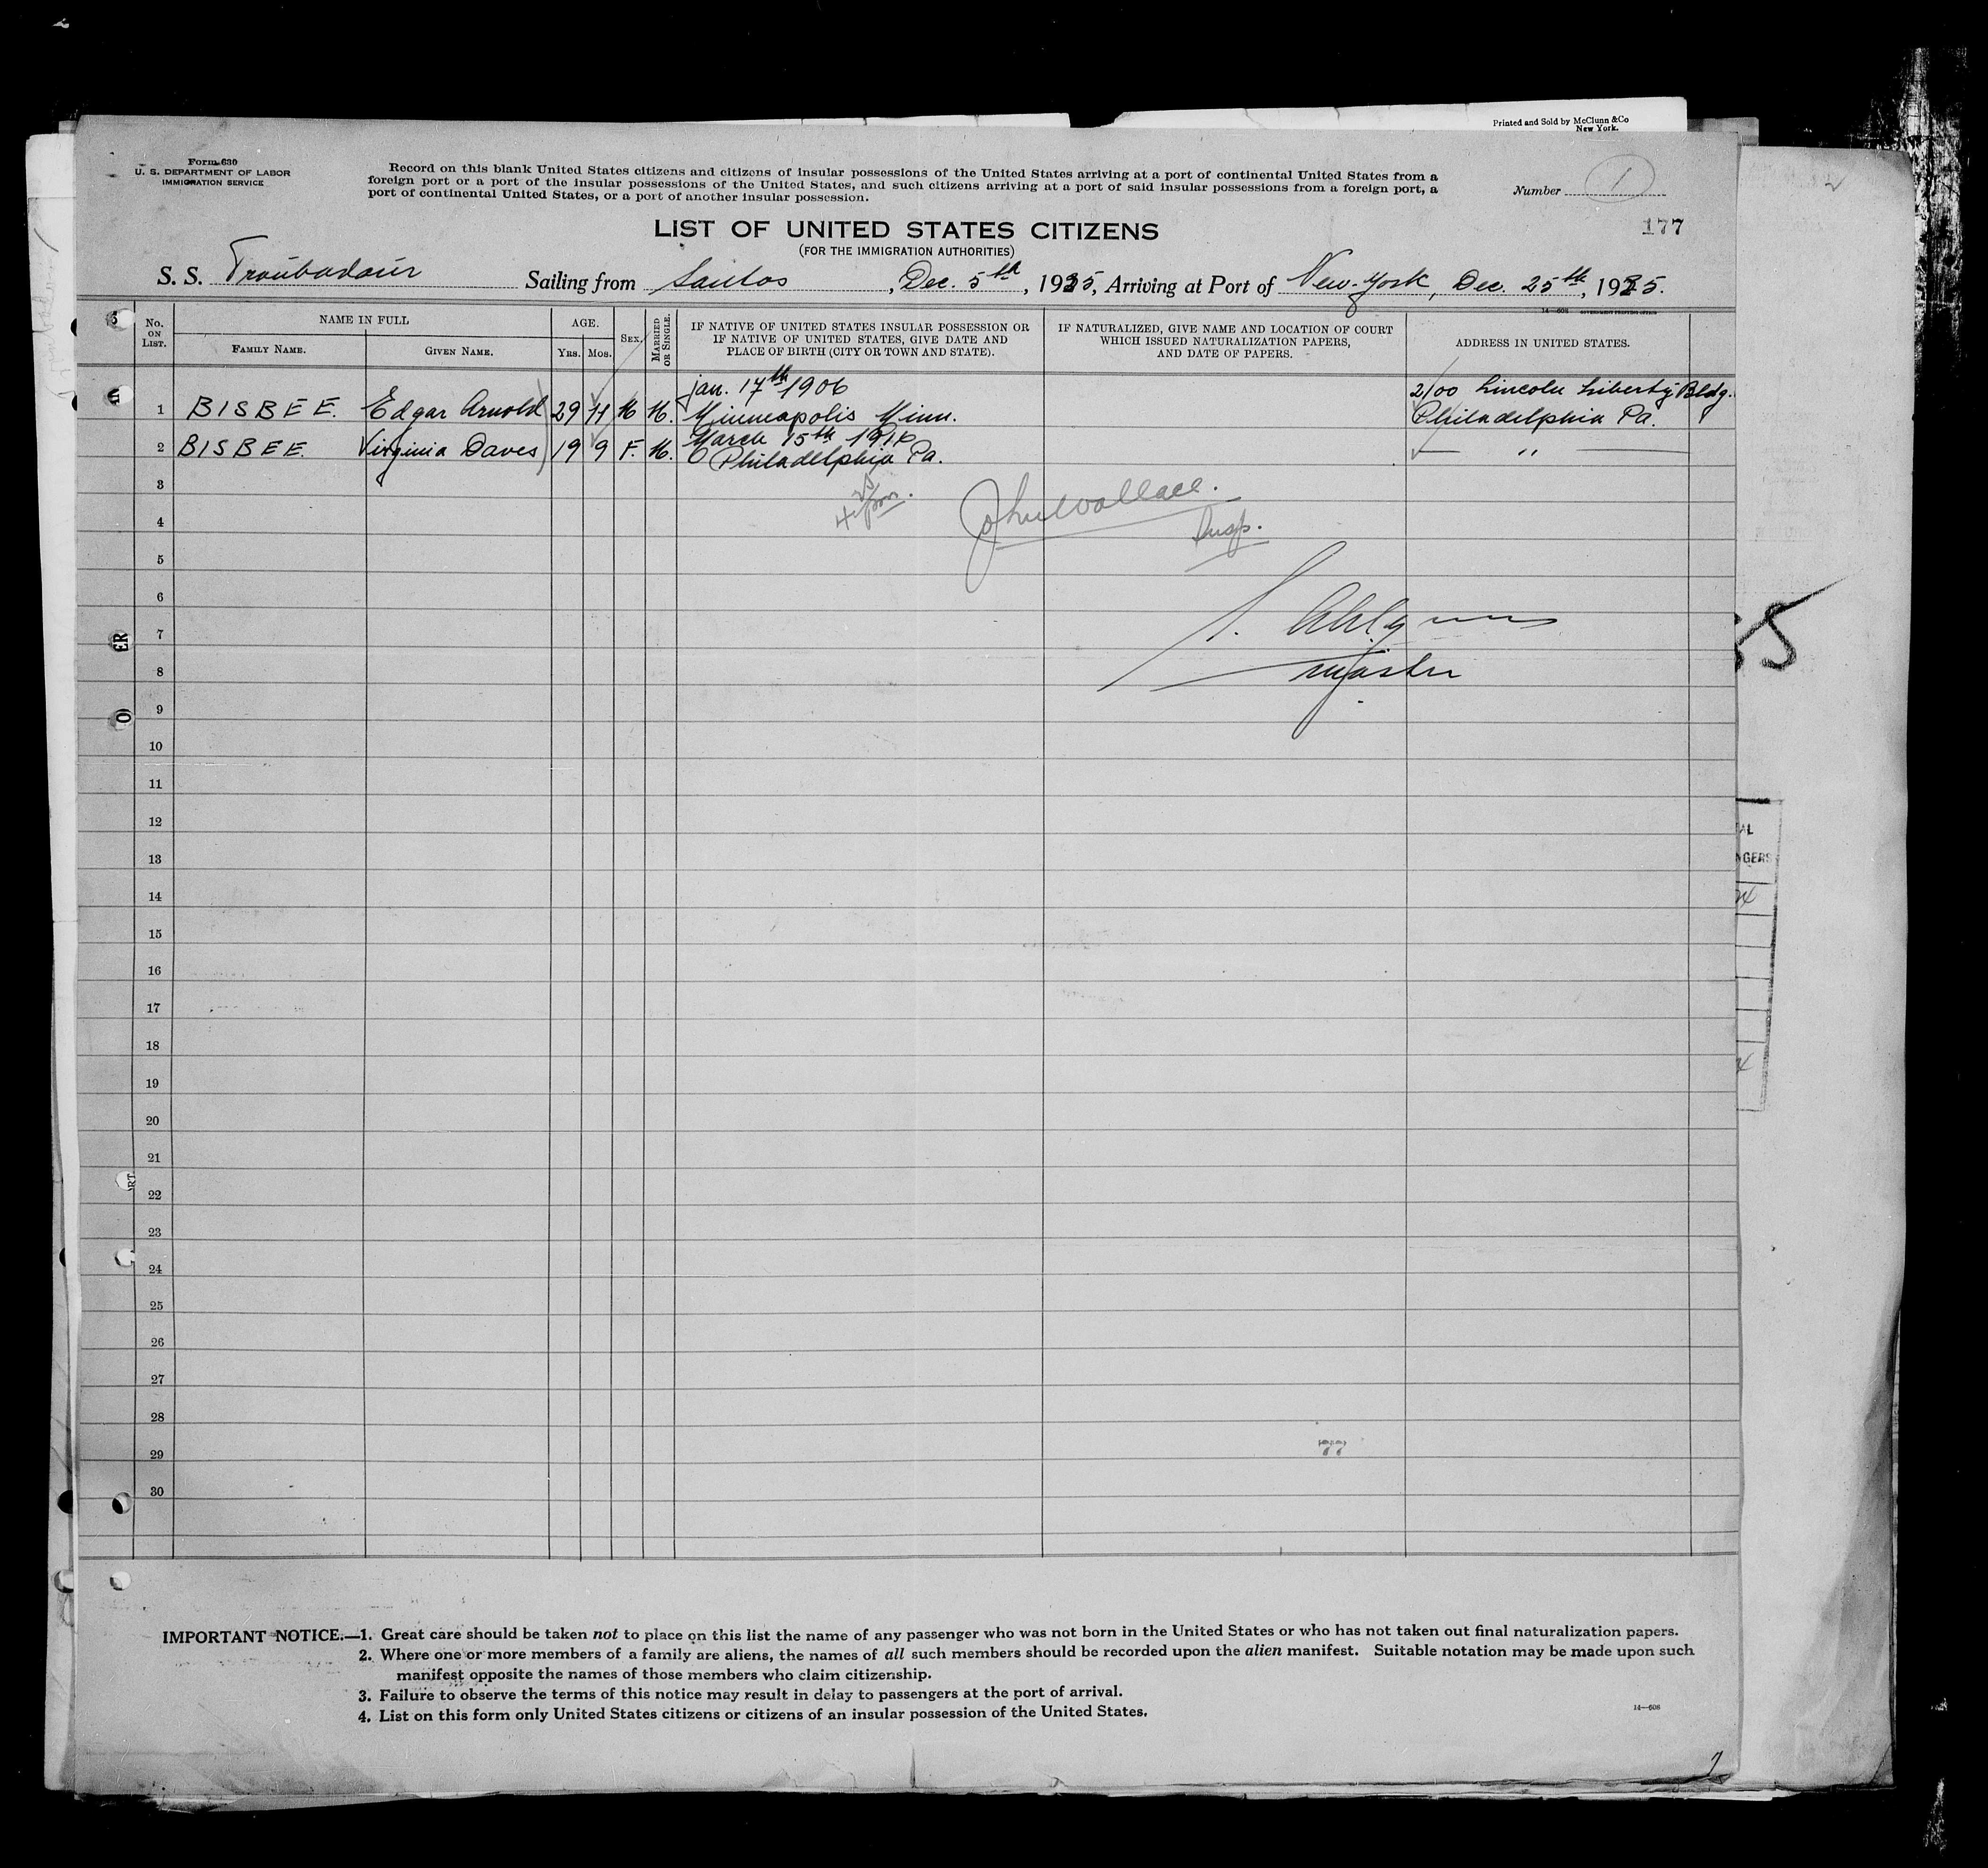 Printed and Sold by McClunn &Co
New York.
Form 630
U. S. DEPARTMENT OF LABOR
IMMIGRATION SERVICE
Record on this blank United States citizens and citizens of insular possessions of the United States arriving at a port of continental United States from a
foreign port or a port of the insular possessions of the United States, and such citizens arriving at a port of said insular possessions from a foreign port, a
port of continental United States, or a port of another insular possession.
Number 1
177
LIST OF UNITED STATES CITIZENS
(FOR THE IMMIGRATION AUTHORITIES)
S. S. Troubadour Sailing from Santos, Dec. 5th, 1935, Arriving at Port of New-York, Dec. 25th, 1935.
14—608 GOVERNMENT PRINTING OFFICE
No. ON LIST. NAME IN FULL FAMILY NAME. GIVEN NAME. AGE. Yrs. Mos. SEX. MARRIED OR SINGLE. IF NATIVE OF UNITED STATES INSULAR POSSESSION OR IF NATIVE OF UNITED STATES, GIVE DATE AND PLACE OF BIRTH (CITY OR TOWN AND STATE). IF NATURALIZED, GIVE NAME AND LOCATION OF COURT WHICH ISSUED NATURALIZATION PAPERS, AND DATE OF PAPERS. ADDRESS IN UNITED STATES.
jan. 17th 1906 2100 Lincoln Liberty Bldg.
1 BISBEE. Edgar Arnold 29 11 M M. Minneapolis Minn. Philadelphia Pa.
March 15th
2 BISBEE. Virginia Daves 19 9 F. M. Philadelphia Pa. "
3
John Wallace.
4 Insp.
5
6
7
8 Master
9
10
11
12
13
14
15
16
17
18
19
20
21
22
23
24
25
26
27
28
29 77
30
IMPORTANT NOTICE.—1. Great care should be taken not to place on this list the name of any passenger who was not born in the United States or who has not taken out final naturalization papers.
2. Where one or more members of a family are aliens, the names of all such members should be recorded upon the alien manifest. Suitable notation may be made upon such
manifest opposite the names of those members who claim citizenship.
3. Failure to observe the terms of this notice may result in delay to passengers at the port of arrival.
4. List on this form only United States citizens or citizens of an insular possession of the United States.
14—608